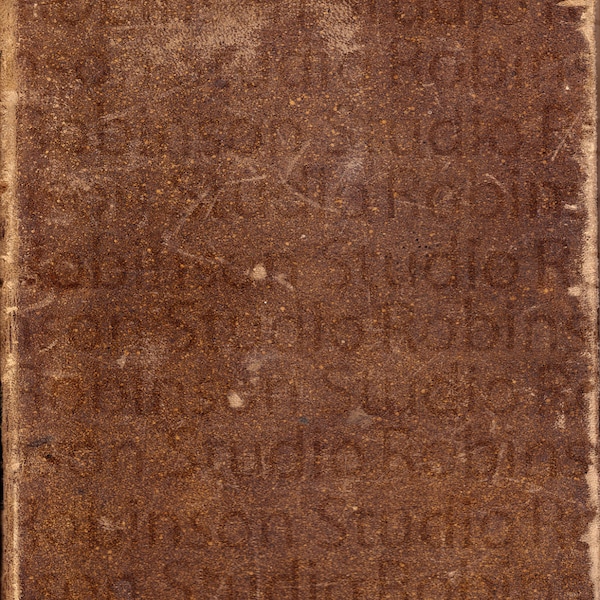 Robinson Studio Robins
Robinson Studio R
son Studio Robins
Robinson Studio R
son Studio Robins
Robinson Studio R
son Studio Robins
Robinson Studio R
son Studio Robins